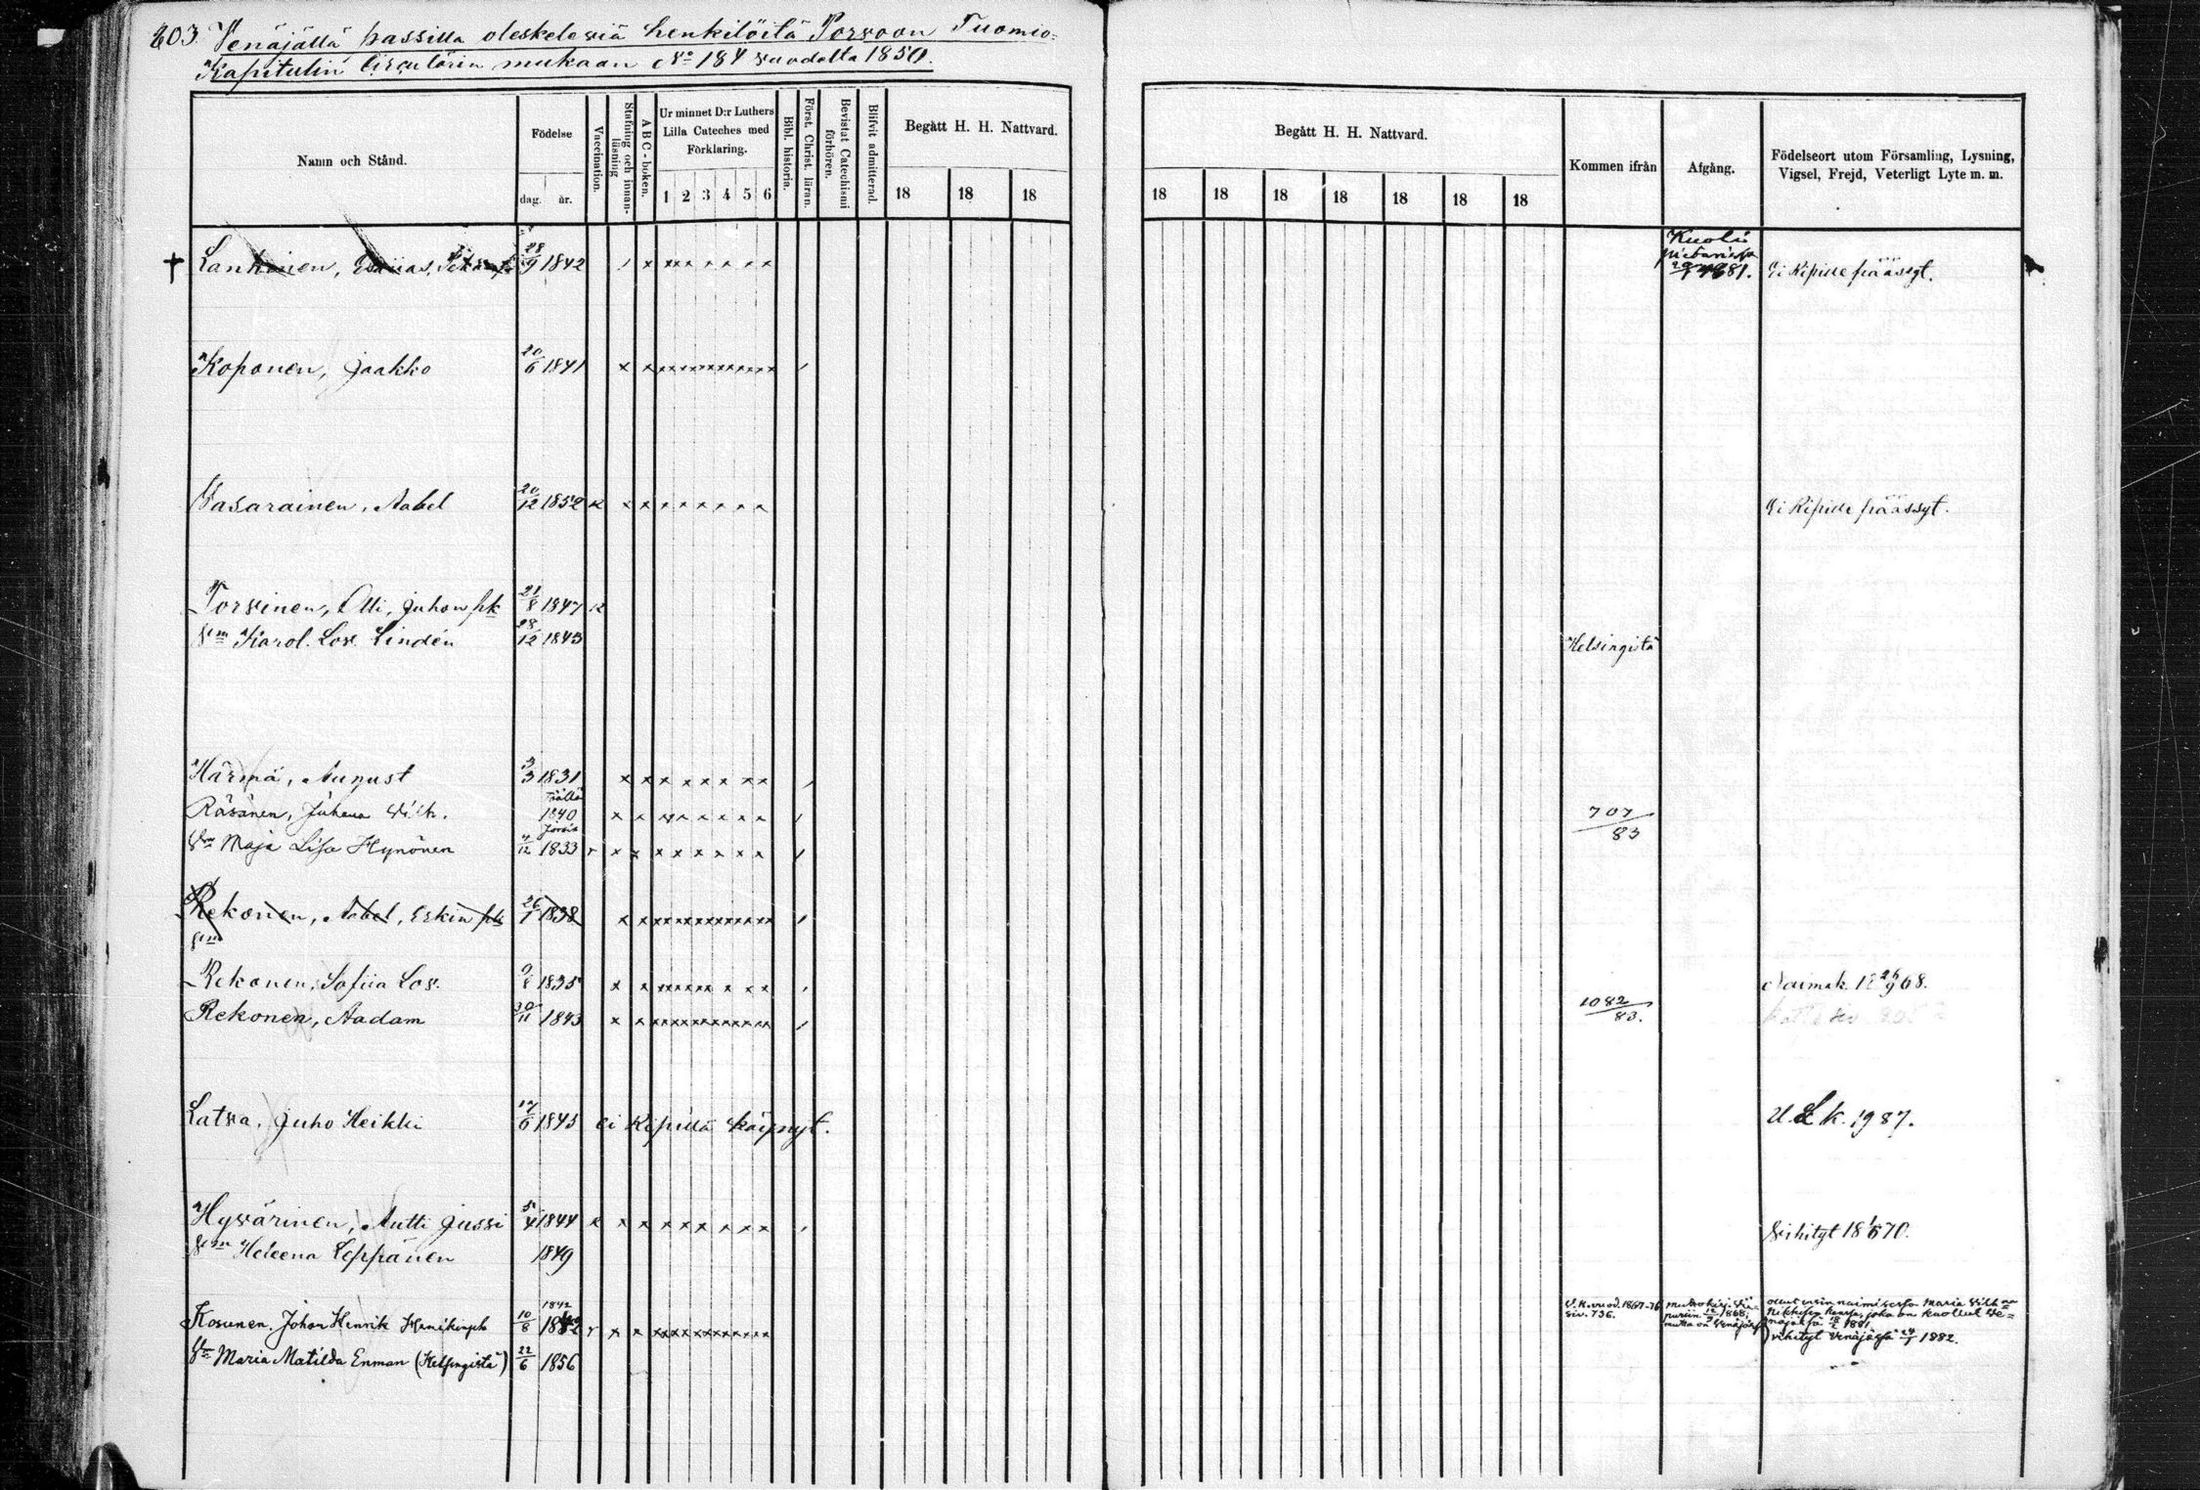 203. Venäjällä passilla oleskelewia henkilöitä Porwoon Tuomio=
Kapitulin Circulärin mukaan No 184 vuodelta 1850.
Namn och Stånd.
Födelse
dag. år.
Vaccination.
Stafning och innan-läsning
ABC-boken.
Ur minnet D:r Luthers
Lilla Cateches med
Förklaring.
1 2 3 4 5 6
Bibl. historia.
Först. Christ. läran.
Bevistat Catechismi förhören.
Blifvit admitterad.
Begått H. H. Nattvard.
18 18 18
Begått H. H. Nattvard.
18 18 18 18 18 18 18
Kommen ifrån
Afgång.
Födelseort utom Församling, Lysning,
Vigsel, Frejd, Veterligt Lyte m. m.
† Lankinen, 28/9 1842 Kuoli 1881. Ei Ripille päässyt.
Koponen, Jaakko 20/6 1841
Wasarainen, Aabel 20/12 1852 Ei Ripille päässyt.
Torvinen, Olli, Juhon pk 21/8 1847
Wm Karol. Lov. Lindén 28/12 1843 Helsingistä
Härmä, August 3/3 1831
Räsänen, Juhana Wilh. 1840 707/83
Wm Maja Lisa Hynönen 4/12 1833
Rekonen, Aabel, Erkin pk 26/1 1838
Wm
Rekonen, Sofiia Lov. 1835 Naimak. 18 26/9 68.
Rekonen, Aadam 30/11 1843 1082/83.
Latva, Juho Heikki 17/6 1843 ei Ripillä käynyt. U.L.K. 1987.
Hyvärinen, Antti Jussi 5/4 1844 Wihityt 18 1/5 70.
Wm Heleena Leppänen 1849
Kosunen, Johan Henrik 10/8 1842 R.K. vuod. 1867-76 siv. 736.
ollut ensin naimisessa Maria
joka on kuollut We=
näjällä 1881.
vihityt Venäjällä 1882.
Wm Maria Matilda Enman (Helsingistä) 22/6 1856